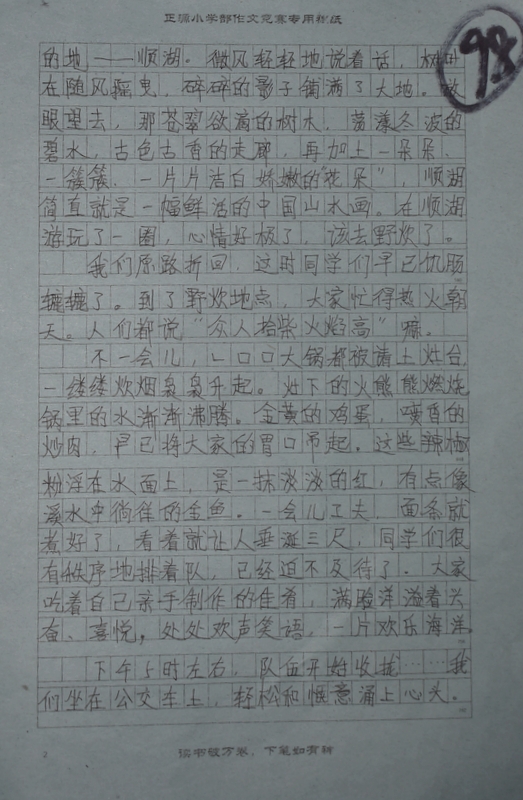 正源小学部作文竞赛专用稿纸
98
的地——顺湖。微风轻轻地说着话,树叶
在随风摇曳,碎碎的影子铺满了大地。放
眼望去,那苍翠欲滴的树木,荡漾冬波的
碧水,古色古香的走廊,再加上一朵朵、
一簇簇、一片片洁白娇嫩的“花朵”,顺湖
简直就是一幅鲜活的中国山水画。在顺湖
游玩了一圈,心情好极了,该去野炊了。
我们原路折回,这时同学们早已饥肠
辘辘了。到了野炊地点,大家忙得热火朝
天。人们都说“众人拾柴火焰高”嘛。
不一会儿,一口口大锅都被请上灶台,
一缕缕炊烟袅袅升起。灶下的火熊熊燃烧,
锅里的水渐渐沸腾。金黄的鸡蛋,喷香的
炒肉,早已将大家的胃口吊起。这些辣椒
粉浮在水面上,是一抹淡淡的红,有点像
溪水中徜徉的金鱼。一会儿工夫,面条就
煮好了,看着就让人垂涎三尺,同学们很
有秩序地排着队,已经迫不及待了。大家
吃着自己亲手制作的佳肴,满脸洋溢着兴
奋、喜悦,处处欢声笑语,一片欢乐海洋。
下午5时左右,队伍开始收拢……我
们坐在公交车上,轻松和惬意涌上心头。
2 读书破万卷,下笔如有神